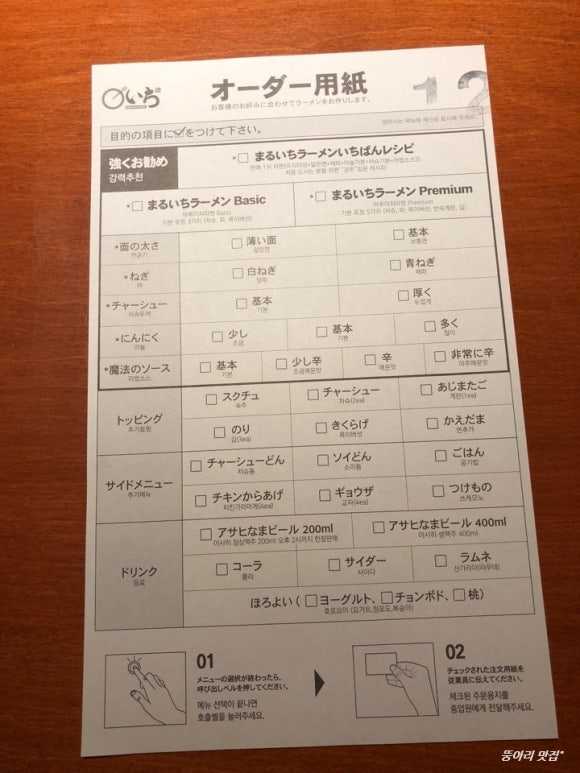 いち
オーダー用紙
お客様のお好みに合わせてラーメンをお作りします。
12
目的の項目に✓をつけて下さい。
원하시는 메뉴에 체크로 표시해 주세요.
強くお勧め
강력추천
* □ まるいちラーメンいちばんレシピ
* □ まるいちラーメン Basic
마루이치라멘 Basic
기본 토핑 3가지 (차슈, 파, 목이버섯)
* □ まるいちラーメン Premium
마루이치라멘 Premium
기본 토핑 5가지 (차슈, 파, 목이버섯, 반숙계란, 김)
*面の太さ □ 薄い面 □ 基本
면굵기 얇은면 보통면
*ねぎ □ 白ねぎ □ 青ねぎ
파 양파 쪽파
*チャーシュー □ 基本 □ 厚く
차슈두께 기본 두껍게
*にんにく □ 少し □ 基本 □ 多く
마늘 조금 기본 많이
*魔法のソース □ 基本 □ 少し辛 □ 辛 □ 非常に辛
마법소스 기본 조금매운맛 매운맛 아주매운맛
トッピング □ スクチュ □ チャーシュー □ あじまたご
추가토핑 숙주 차슈(2ea) 계란(1ea)
□ のり □ きくらげ □ かえだま
김(3ea) 목이버섯 면추가
サイドメニュー □ チャーシューどん □ ソイどん □ ごはん
추가메뉴 차슈동 소이동 공기밥
□ チキンからあげ □ ギョウザ □ つけもの
치킨가라아게(4ea) 교자(4ea) 쓰케모노
ドリンク □ アサヒなまビール 200ml □ アサヒなまビール 400ml
음료 아사히 점심맥주 200ml 오후 2시까지 한정판매 아사히 생맥주 400ml
□ コーラ □ サイダー □ ラムネ
콜라 사이다 신가리아(라무네)
ほろよい ( □ ヨーグルト、 □ チョンポド、 □ 桃 )
호로요이 (요거트,청포도,복숭아)
01
メニューの選択が終わったら、
呼び出しベルを押してください。
메뉴 선택이 끝나면
호출벨을 눌러주세요.
02
チェックされた注文用紙を
従業員に伝えてください。
체크된 주문용지를
종업원에게 전달해주세요.
뚱아리 맛집*